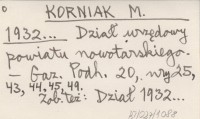 KORNIAK M.
1932... Dział urzędowy
powiatu nowotarskiego.
— Gaz. Podh. 20, nry 25,
43, 44, 45, 49.
Zob. też: Dział 1932...